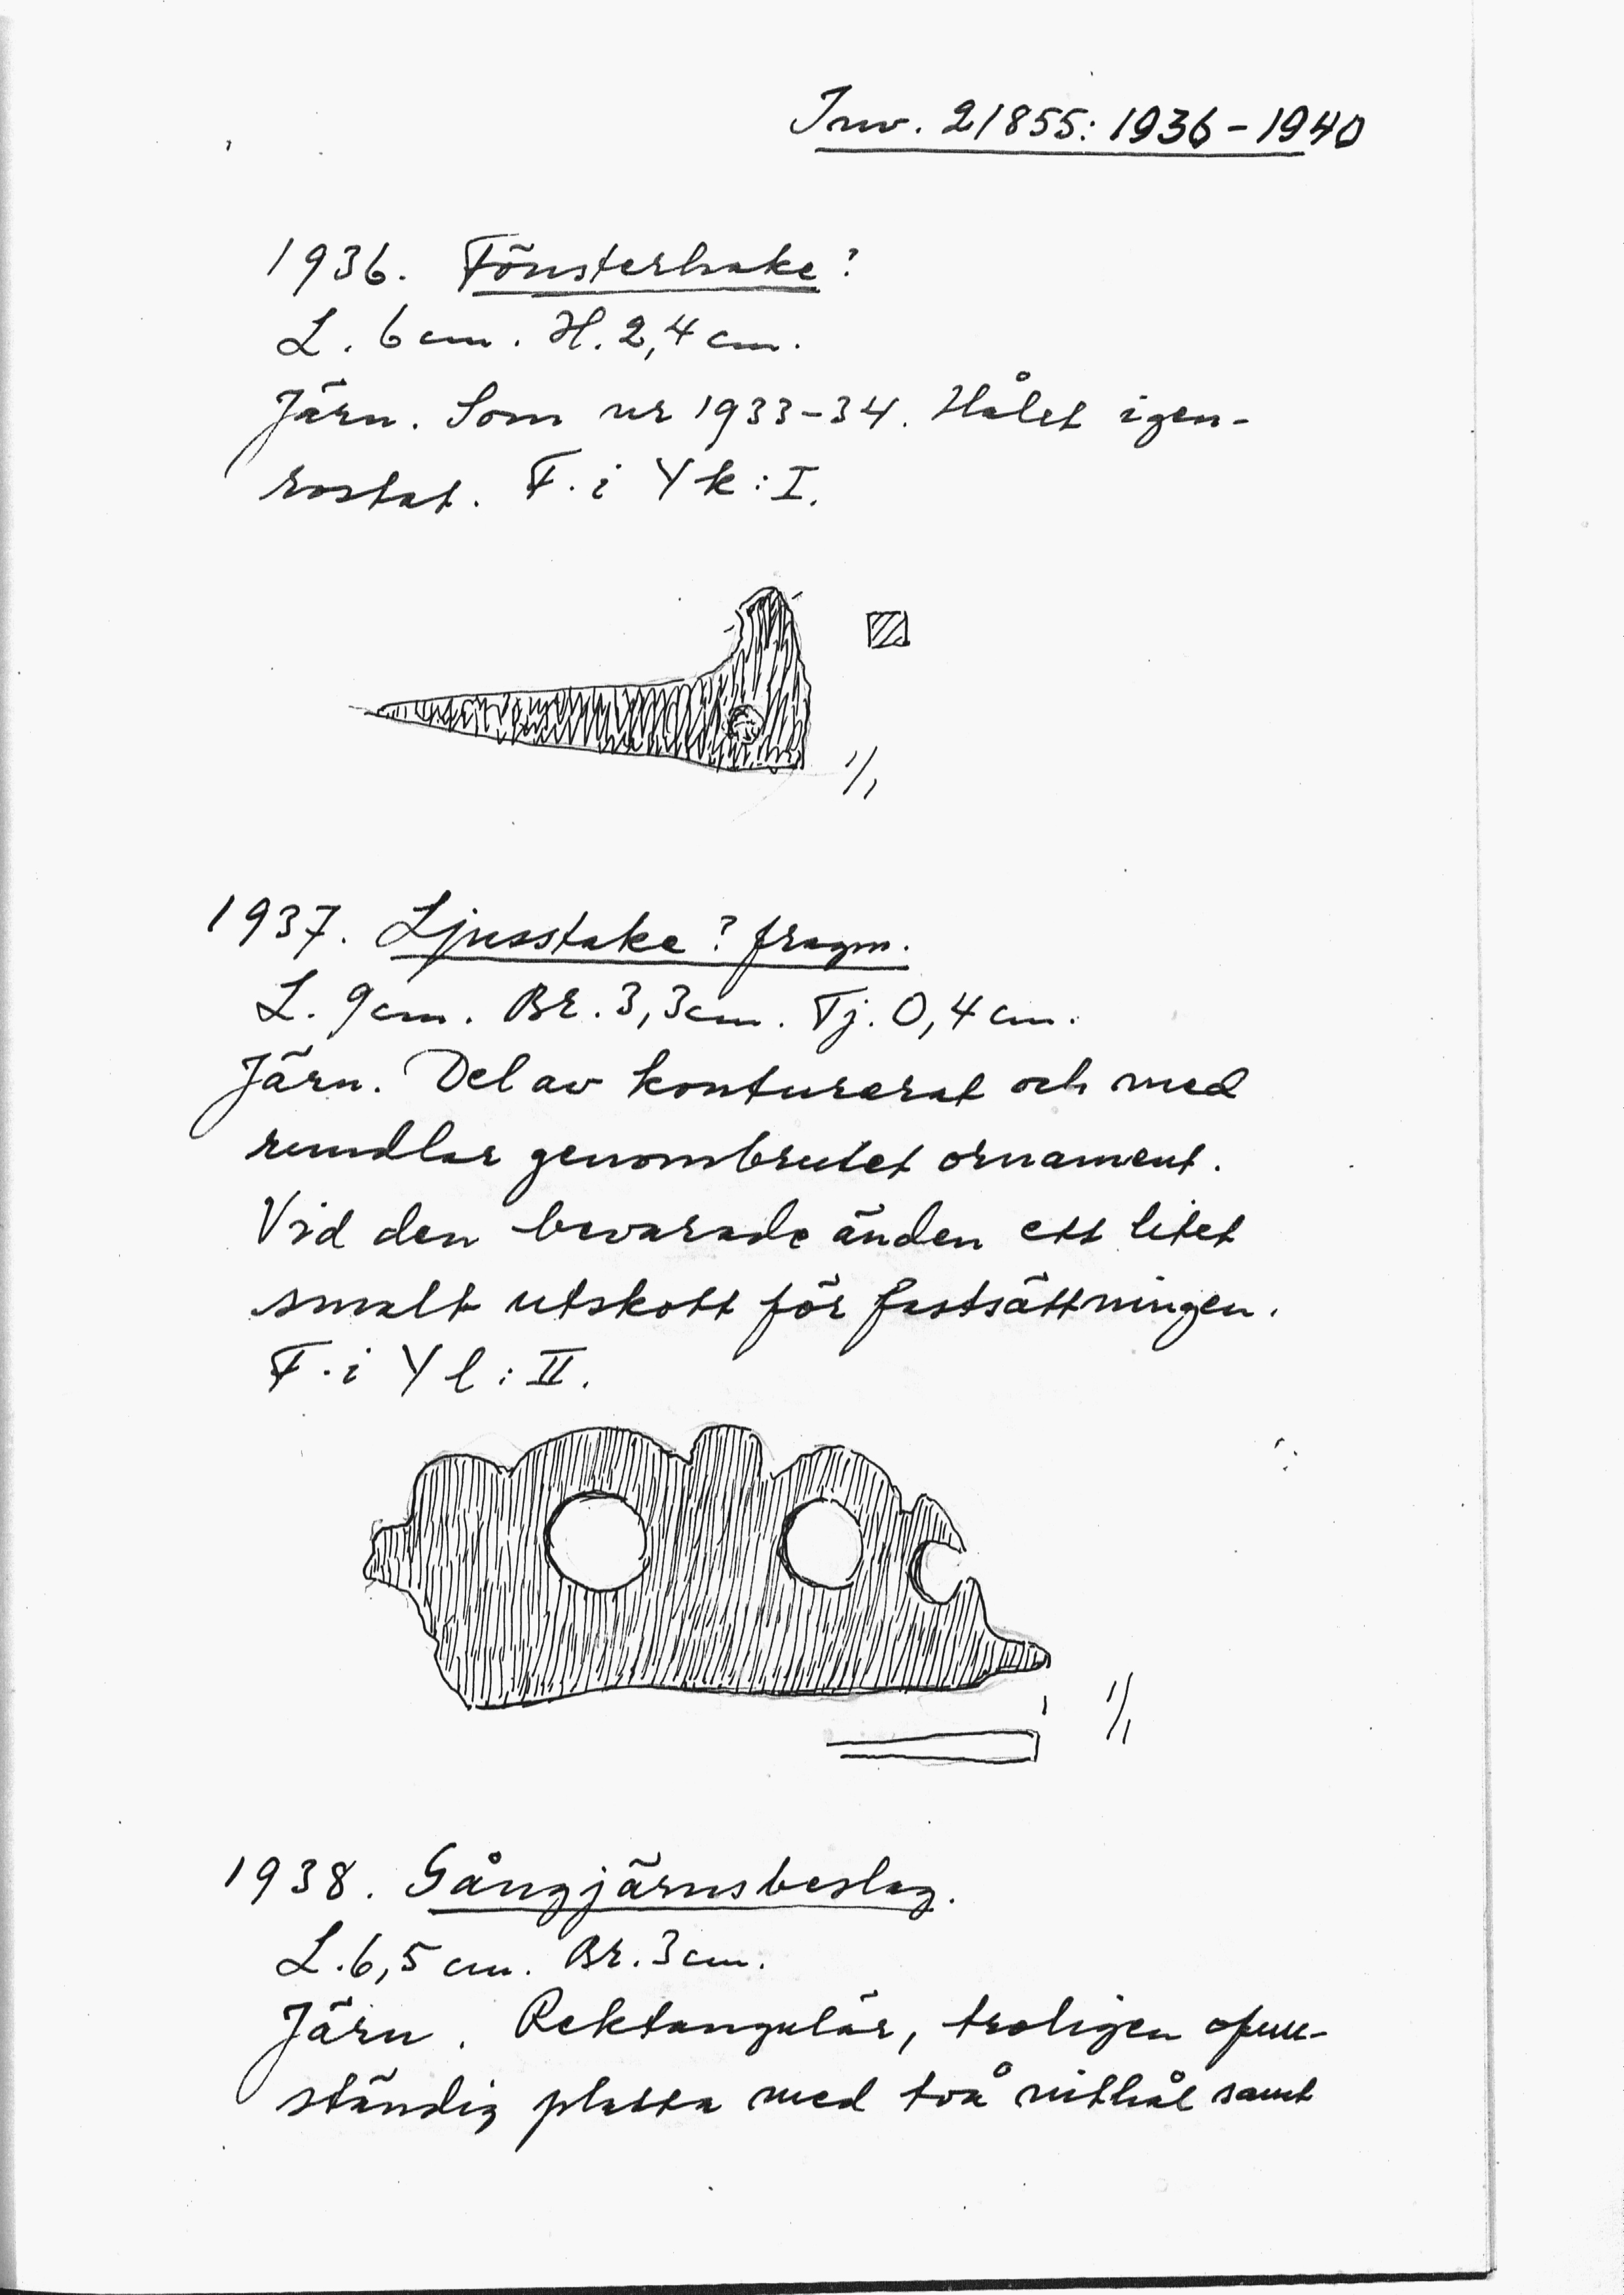 Inv. 21855: 1936-1940
1936. Fönsterhake?
L. 6 cm. H. 2,4 cm.
Järn. Som nr 1933-34. Hålet igen-
rostat. F. i Yk: I.
1/1
1937. Ljusstake? fragm.
L. 9 cm. Br. 3,3 cm. Tj. 0,4 cm.
Järn. Del av konturerat och med
rundlar genombrutet ornament.
Vid den bevarade änden ett litet
smalt utskott för fastsättningen.
F. i Yl: II.
1/1
1938. Gångjärnsbeslag.
L. 6,5 cm. Br. 3 cm.
Järn. Rektangulär, troligen ofull-
ständig platta med två nithål samt